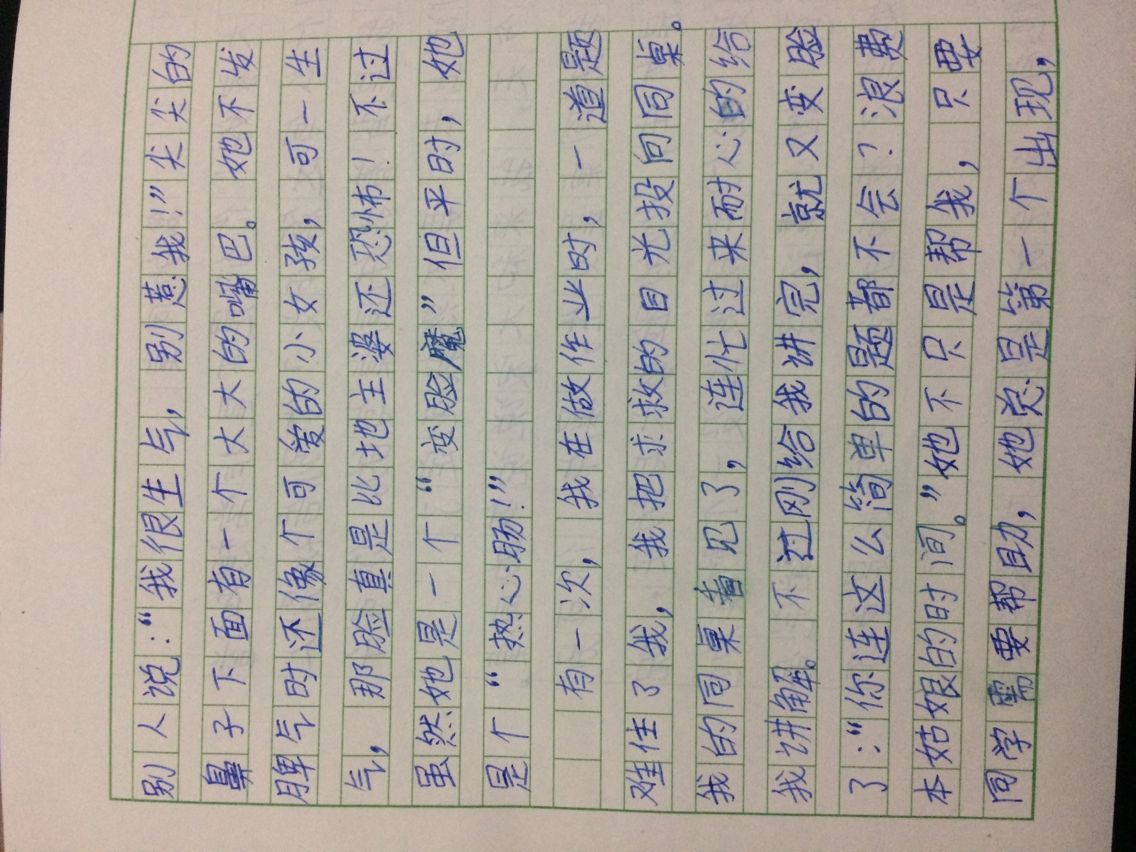 别人说：“我很生气，别惹我！”尖尖的
鼻子下面有一个大大的嘴巴。她不发
脾气时还像个可爱的小女孩，可一生
气，那脸真是比地主婆还恐怖！不过
虽然她是一个“变脸魔”但平时，她
是个“热心肠！”
有一次，我在做作业时，一道题
难住了我，我把求救的目光投向同桌。
我的同桌看见了，连忙过来耐心的给
我讲解。不过刚给我讲完，就又变脸
了：“你连这么简单的题都不会？浪费
本姑娘的时间。”她不只是帮我，只要
同学需要帮助，她总是第一个出现，